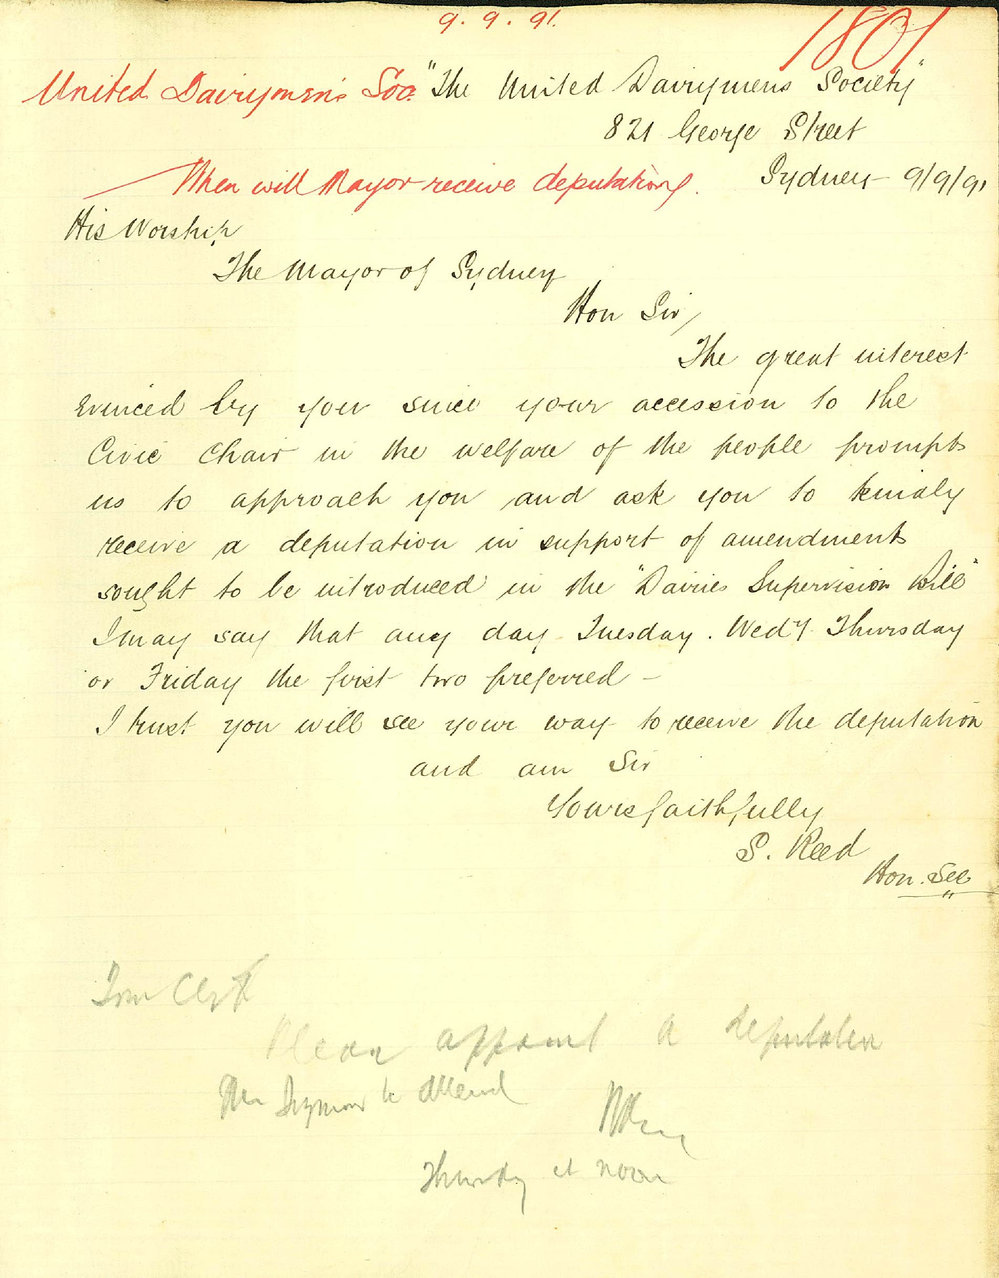 9.9.91.
1801
United Dairymen's Soc.
"The United Dairymens Society"
821 George Street
When will Mayor receive deputation.
Sydney 9/9/91
His Worship
The Mayor of Sydney
Hon Sir,
The great interest
evinced by you since your accession to the
Civic Chair in the welfare of the people prompts
us to approach you and ask you to kindly
receive a deputation in support of amendments
sought to be introduced in the "Dairies Supervision Bill"
I may say that any day Tuesday. Wedy. Thursday
or Friday the first two preferred -
I trust you will see your way to receive the deputation
and am Sir
Yours faithfully
S. Reed
Hon. Sec
Town Clerk
Please appoint a deputation
Mr Seymour to attend
Thursday at noon